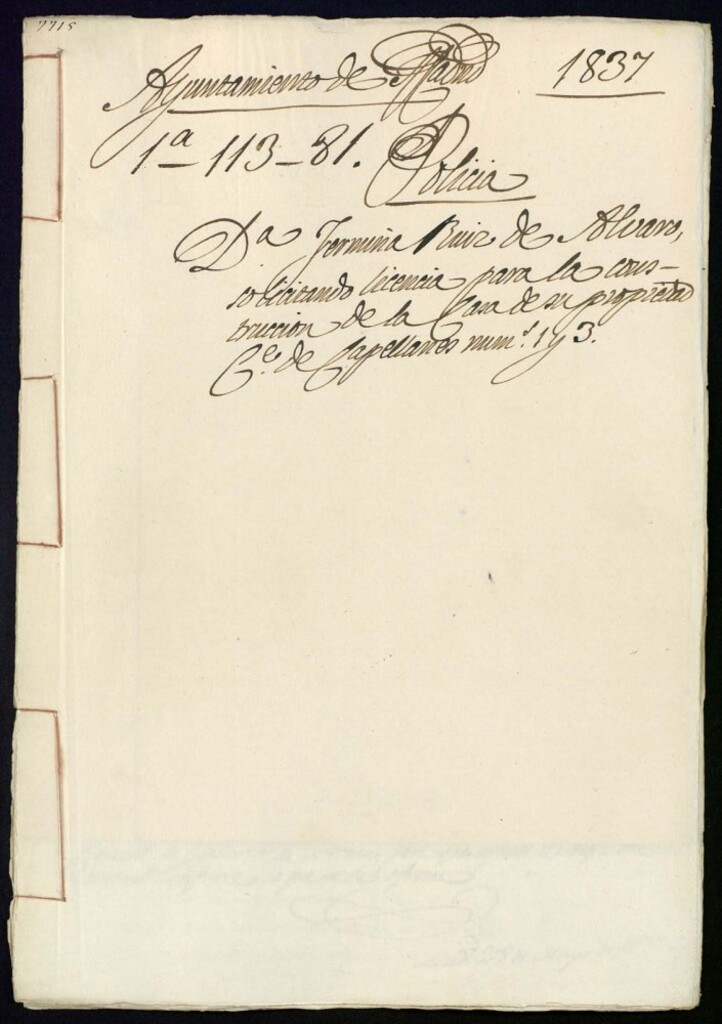 7715
Ayuntamiento de Madrid
1837
1ª 113-81.
Policia
Dª Fermina Ruiz de Alvaro,
solicitando licencia para la cons-
truccion de la Casa de su propiedad
Ce. de Capellanes num.s 1 y 3.